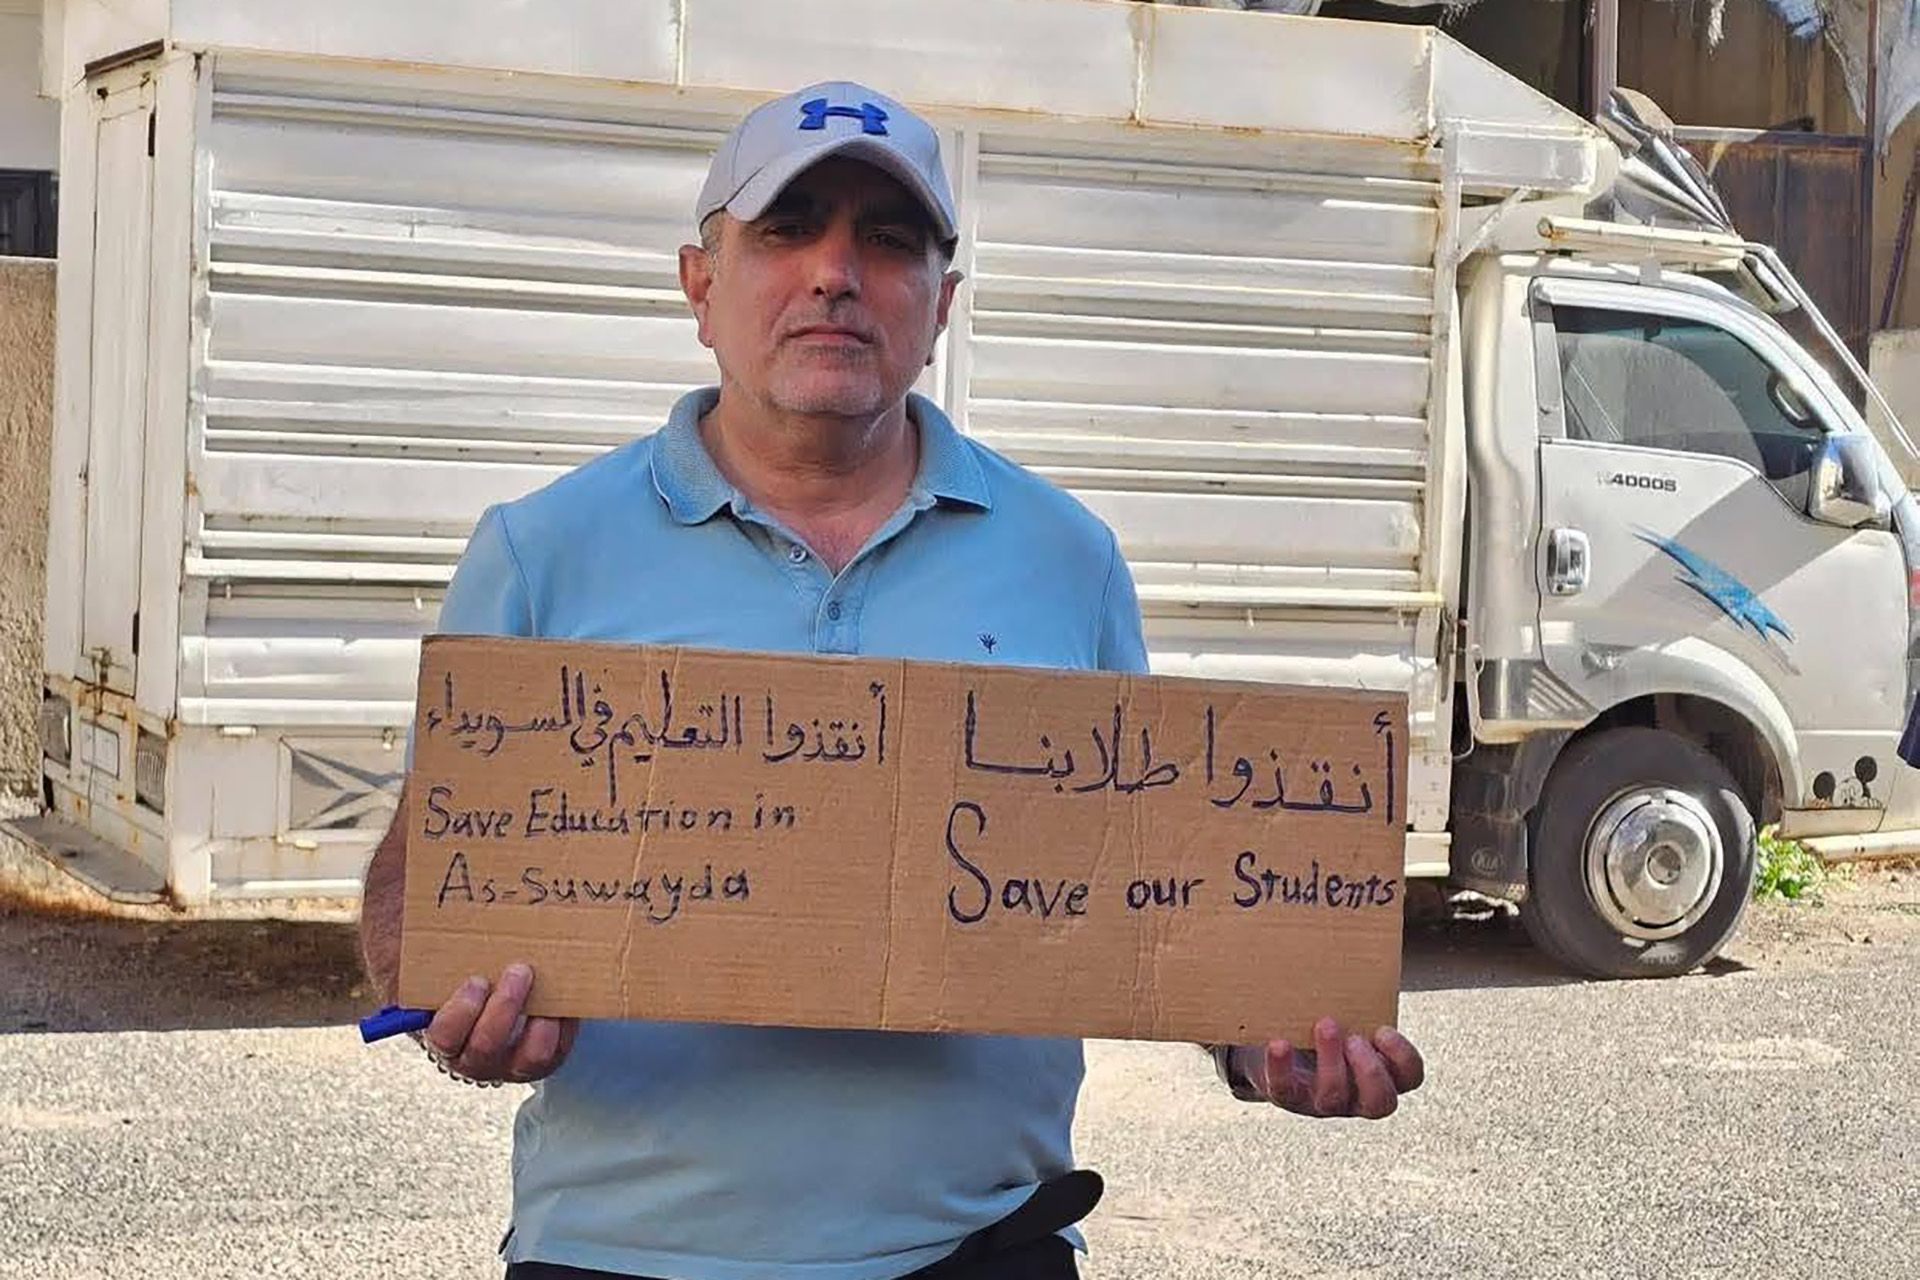 أنقذوا طلابنا
Save our Students
أنقذوا التعليم في السويداء
Save Education in
As-Suwayda
4000S
KIA